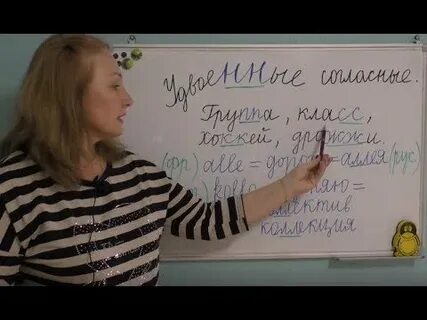 УдвоеННые согласные.
Группа, класс,
хоккей, дрожжи.
(фр) alle = доро = аллея (рус)
няю =
лектив
коллекция